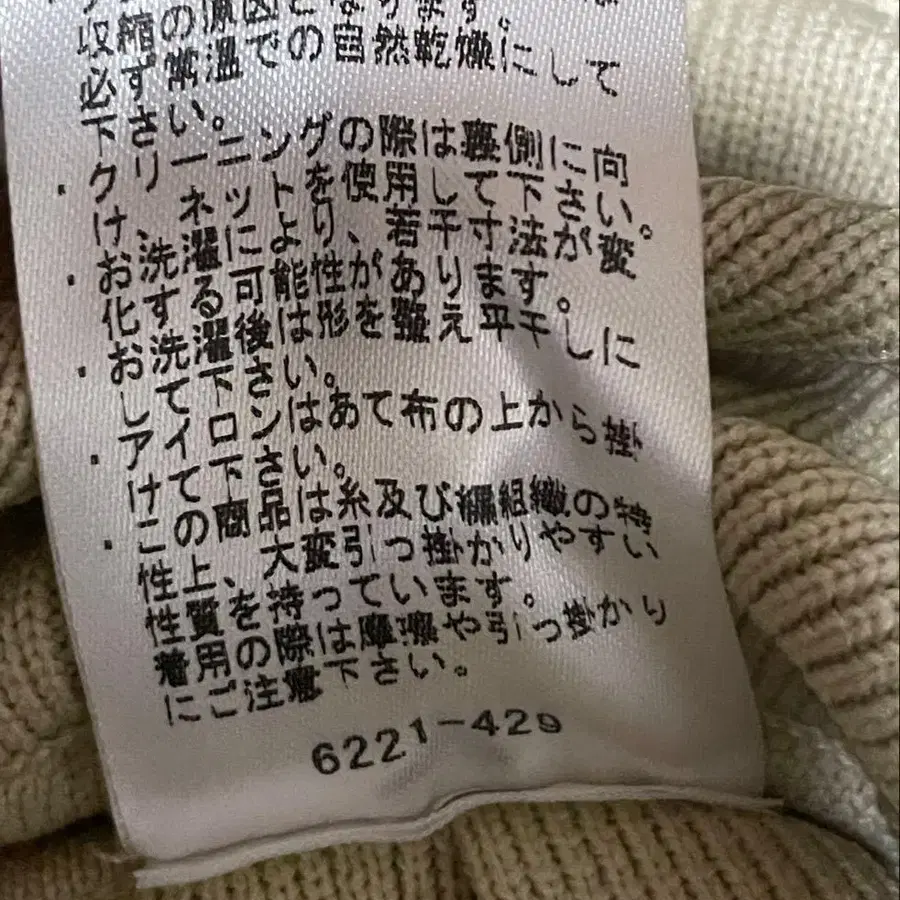 収縮の原因となります。
必ず常温での自然乾燥にして
下さい。
・クリーニングの際は裏側に向
け、ネットを使用して下さい。
・お洗濯により、若干寸法が変
化する可能性があります。
・お洗濯後は形を整え平干しに
して下さい。
・アイロンはあて布の上から掛
けて下さい。
・この商品は糸及び編組織の特
性上、大変引っ掛かりやすい
性質を持っています。
着用の際は摩擦や引っ掛かり
にご注意下さい。
6221-429